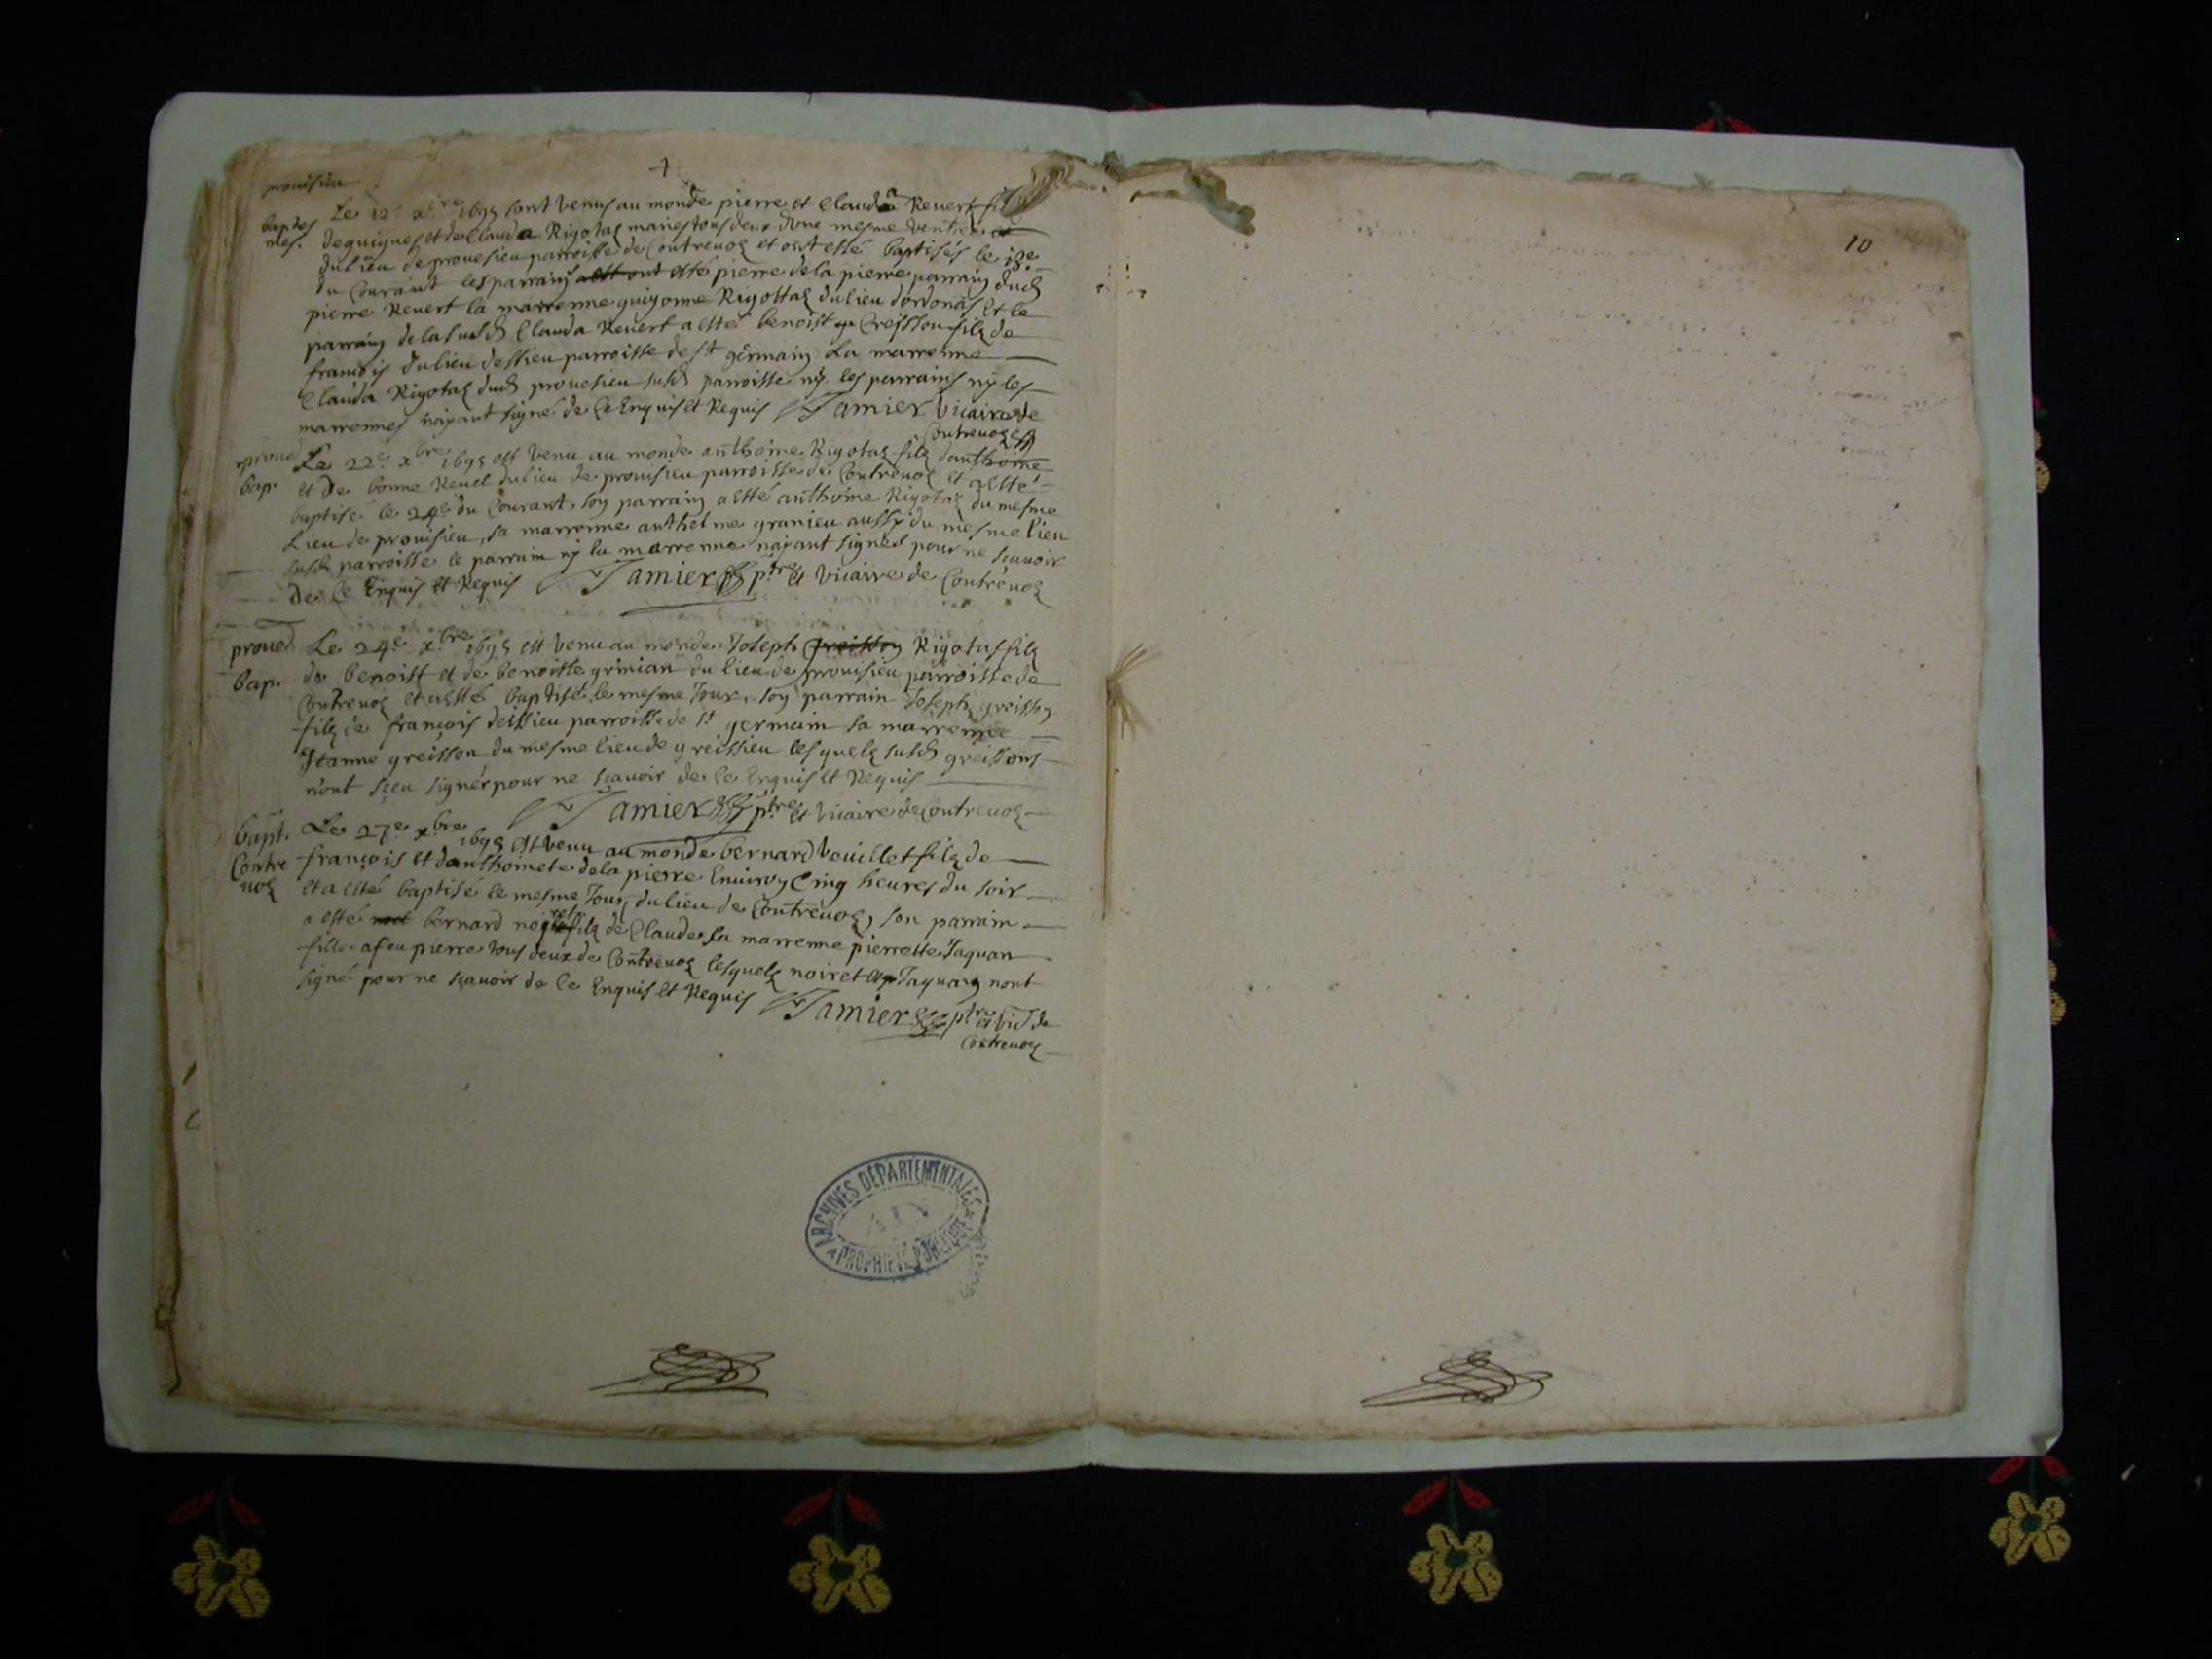 prouisieu
Le 12e xbre 1695 sont venus au monde pierre et Clauda Reuert
baptes
mes.
de guigues et de Clauda Rigotaz maries tous deux dune mesme ventree
du lieu de prouesieu parroisse de Contreuoz et ont esté baptisés le 13e
du Courant les parrains pierre dela pierre parraing dud
pierre Reuert la marrenne guigonne Rigottaz du lieu dordonas Et le
parraing de la susd Clauda Reuert a esté benoist Creisson filz de
francois du lieu dessieu parroisse de st germain La marrenne
Clauda Rigotaz dud prouesieu susd parroisse ny les parrains ny les
marrennes nayant signé de Ce Enquis et Requis Jamier vicaire de
Contreuoz
proued
bap.
Le 22e xbre 1695 est venu au monde anthoine Rigotaz filz danthoine
et de bonne Reuel du lieu de prouisieu parroisse de Contreuoz Et a esté
baptisé le 24e du Courant, son parraing a esté anthoine Rigotaz du mesme
Lieu de prouisieu, sa marrenne anthelme granieu aussy du mesme lieu
susd parroisse le parrain ny la marrenne nayant signés pour ne scauoir
de Ce Enquis et Requis Jamier ptre et Vicaire de Contreuoz
proued
bap.
Le 24e xbre 1695 est venu au monde Joseph greisson Rigotas filz
de benoist et de benoiste griniar du lieu de prouisieu parroisse de
Contreuoz et a esté baptisé le mesme Jour, son parrain Joseph greisson
filz de françois deissieu parroisse de st germain sa marrenne
Jeanne greisson du mesme lieu de greissieu lesquelz susd greissons
nont sçeu signer pour ne sçauoir de Ce Enquis et Requis
Jamier ptre et Vicaire de Contreuoz
bapt.
Contre
uoz
Le 27e xbre 1695 est venu au monde bernard Veuillet filz de
françois et danthoinete dela pierre Enuiron Cinq heures du soir
et a esté baptisé le mesme Jour, du lieu de Contreuoz, son parrain
a esté bernard noiret filz de Claude, sa marrenne pierrette Jaquan
fille a feu pierre tous deux de Contreuoz lesquelz noiret et Jaquan nont
signé pour ne sçauoir de Ce Enquis et Requis Jamier ptre et vic de
Contreuoz
ARCHIVES DÉPARTEMENTALES
AIN
PROPRIÉTÉ PUBLIQUE
10